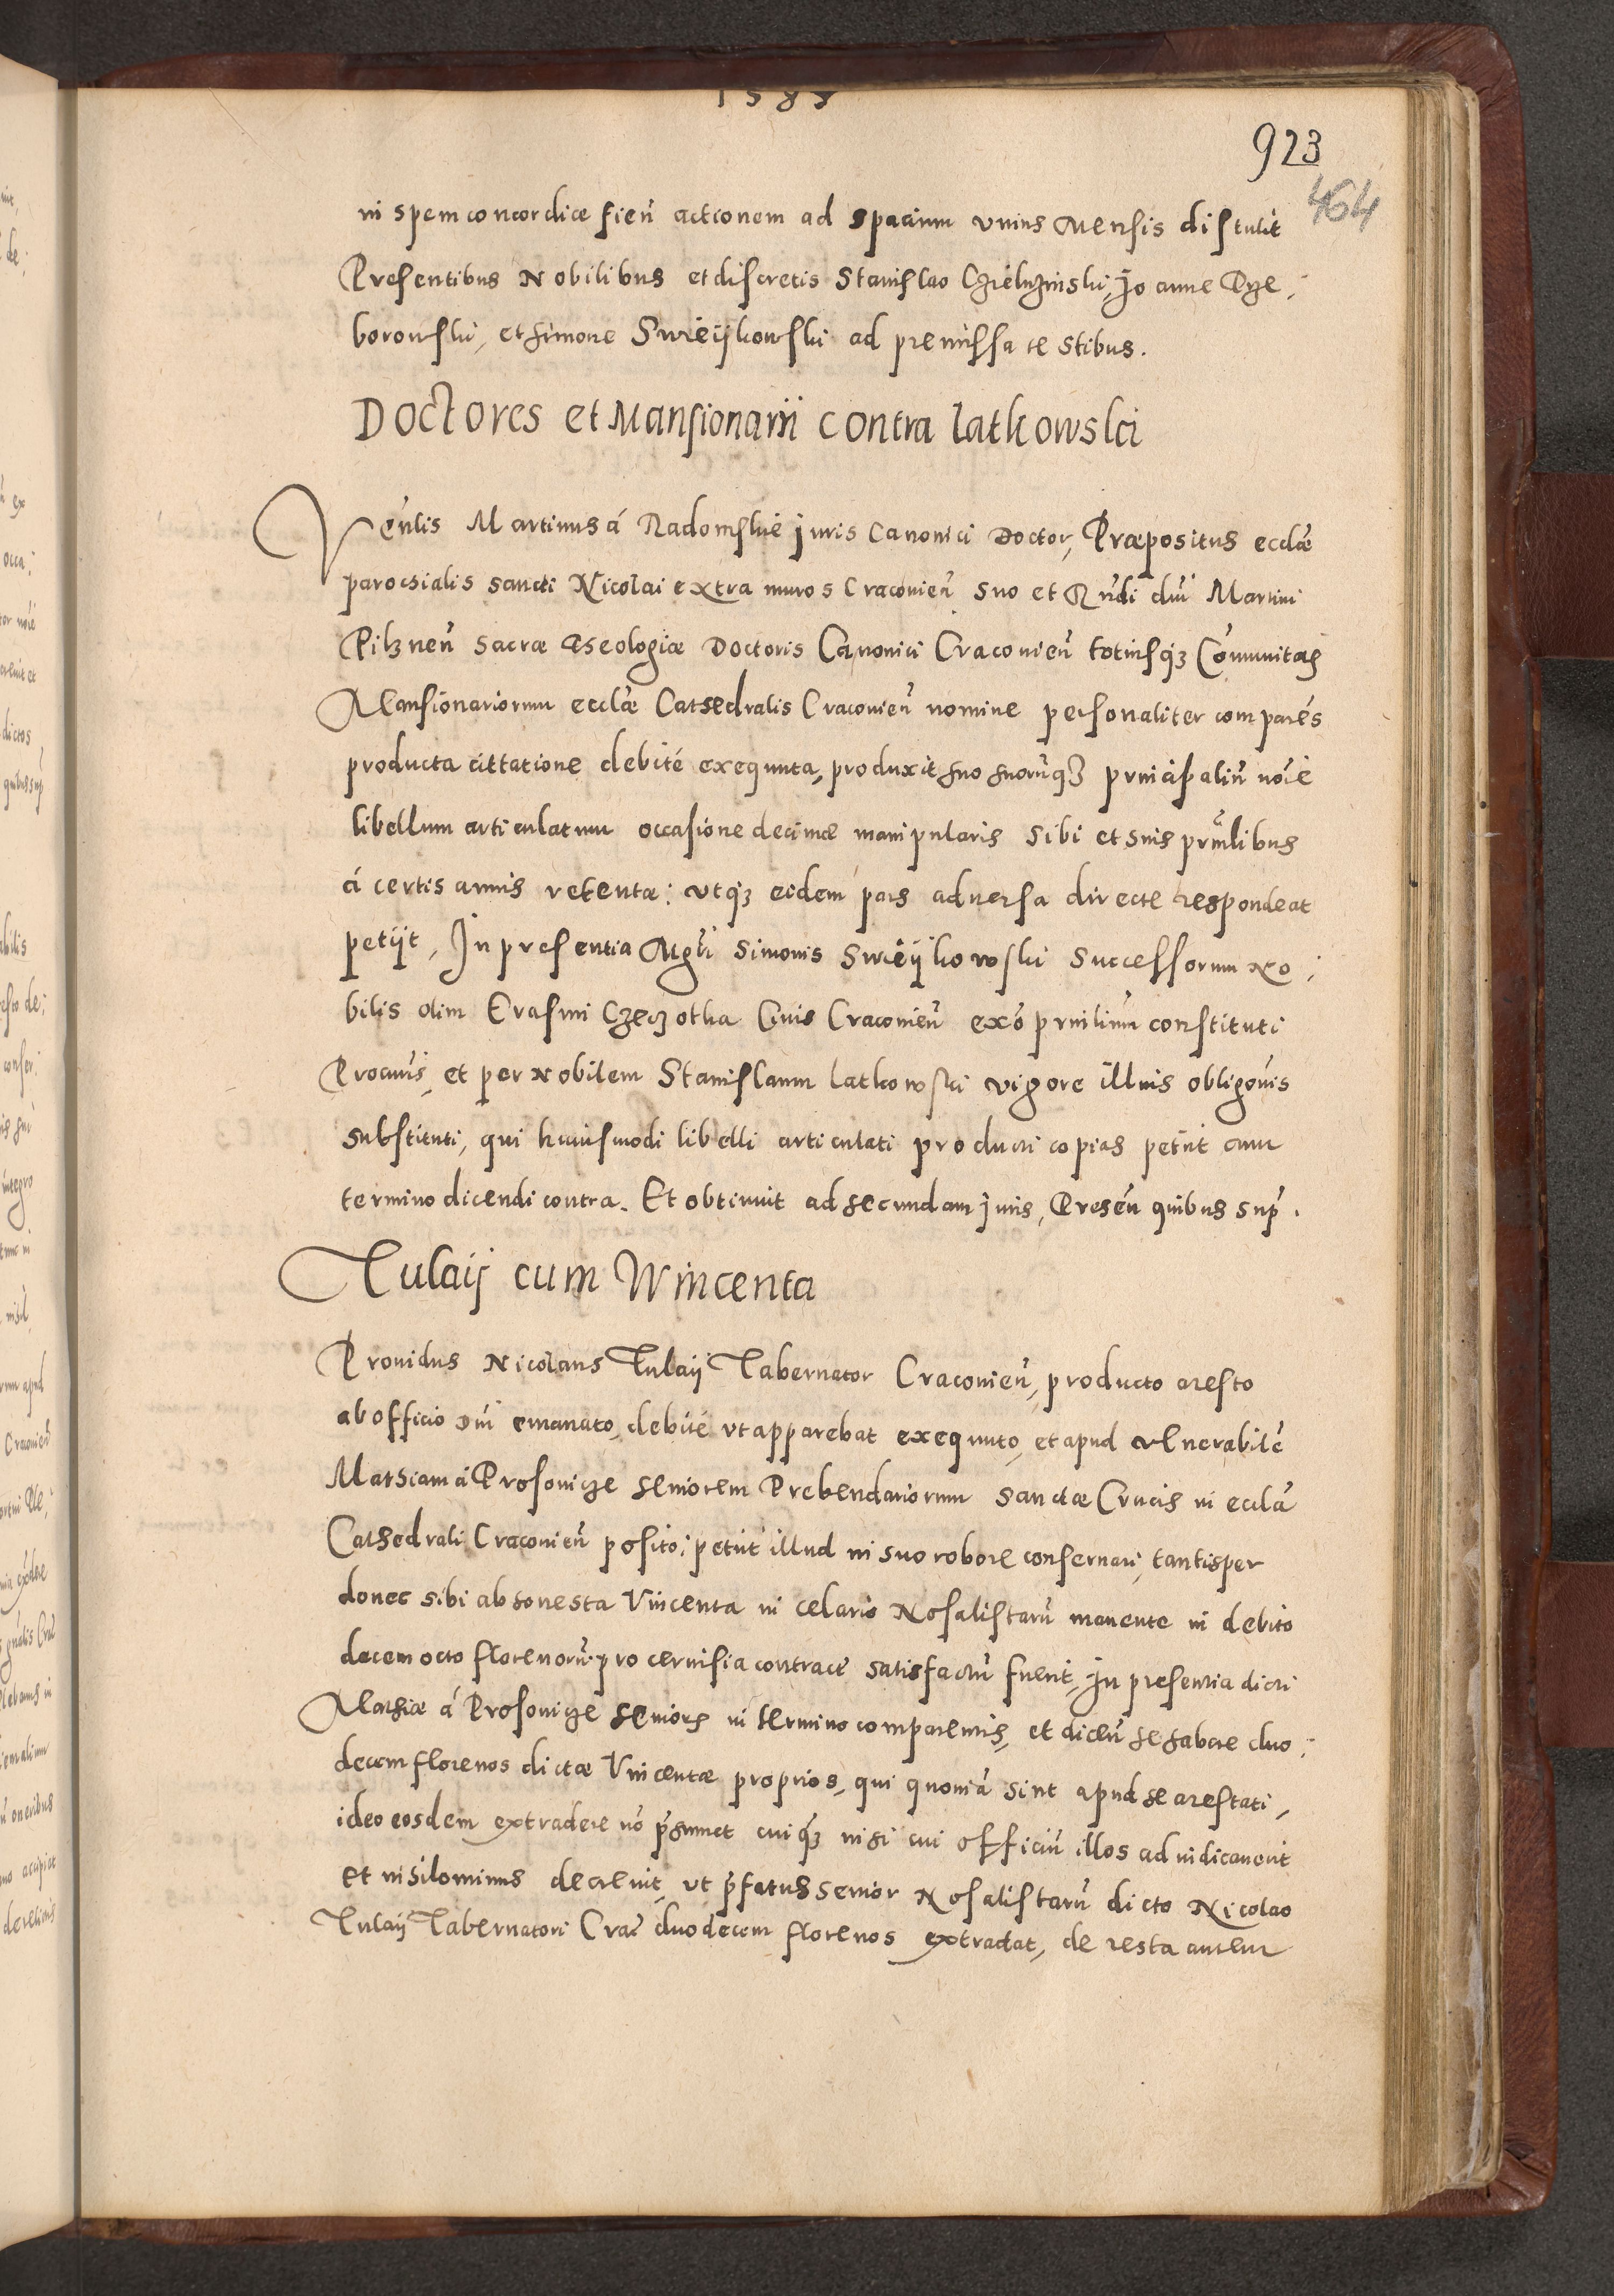 1585
923
464
in spem concordiæ fien̄ actionem ad spacium vnius Mensis distulit
Presentibus Nobilibus et discretis Stanislao Joanne Dze,
borowski, et Simone Swieijkowski ad premissa testibus.
Doctores et Mansionarii contra Latkowski
Venlis Martinus á Radomskie Juris Canonici Doctor, Præpositus ecclæ
parochialis sancti Nicolai extra muros Cracovien̄ suo et Rn̄di dn̄i Martini
Pilznen̄ Sacræ Theologiæ Doctoris Canonici Cracouien̄ totiusq3 Com̄unitatis
Mansionariorum ecclæ Cathedralis Cracouien̄ nomine personaliter comparēs
producta cittatione debité exequuta, produxit suo suorūq3 principaliū noīe
libellum articulatum occasione decimæ manipularis sibi et suis prin̄libus
á certis annis retentæ: vtq3 eidem pars aduersa directe respondeat
petijt, In presentia Mgr̄i Simonis Swieijkowski Successorum No,
bilis olim Erasmi Czeczotka Ciuis Cracouien̄ exo prin̄lium constituti
Procur̄is, et per Nobilem Stanislaum Latkowski vigore illius obligōnis
substituti, qui huiusmodi libelli articulati producti copias petiit cum
termino dicendi contra. Et obtinuit ad secundam Juris, Presen̄ quibus sup̄.
Tulaij cum Wincenta
Prouidus Nicolaus Tulaij Tabernator Cracouien̄, producto aresto
ab officio Dn̄i emanato, debité vt apparebat exequuto, et apud Venerabilē
Mathiam á Prosouicze seniorem Prebendariorum Sanctæ Crucis in ecclā
Cathedrali Cracouien̄ posito, petiit illud in suo robore conseruari, tantisper
donec sibi ab honesta Vincenta in celario Rosalistarū manente in debito
decem octo florenorū pro ceruisia contracto satisfactū fuerit, In presentia dicti
Mathiæ á Prosouicze senioris in termino comparentis, et dicen̄ se habere duo,
decem florenos dictæ Vincentæ proprios, qui quoniā sint apud se arestati,
ideo eosdem extradere nō p̄sumet cuiq3 nisi cui officiū illos adiudicauerit
Et nihilominus decreuit, vt p̄fatus senior Rosalistarū dicto Nicolao
Tulaij Tabernatori Crac̄ duodecem florenos extradat, de resta autem